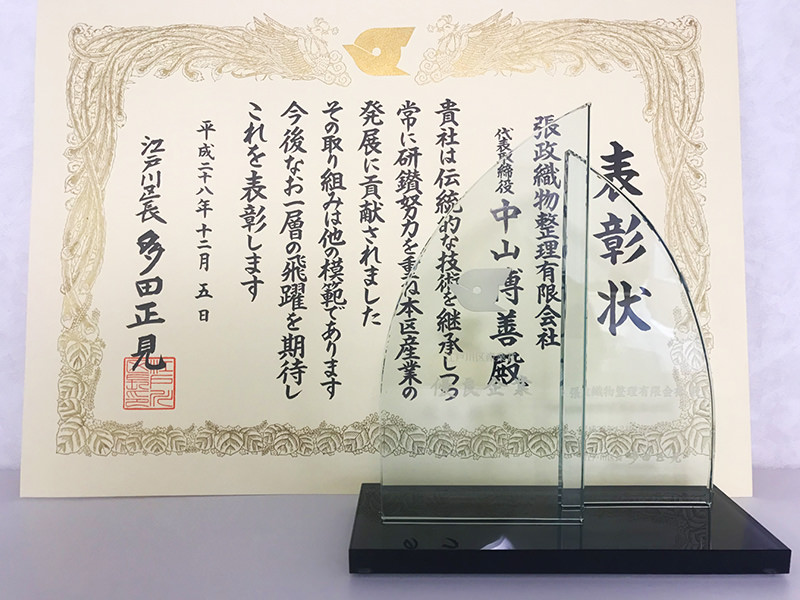 表彰状
張政織物整理有限会社
代表取締役 中山博善殿
貴社は伝統的な技術を継承しつつ
常に研鑚努力を重ね本区産業の
発展に貢献されました
その取り組みは他の模範であります
今後なお一層の飛躍を期待し
これを表彰します
平成二十八年十二月五日
江戸川区長 多田正見
優良企業
張政織物整理有限会社